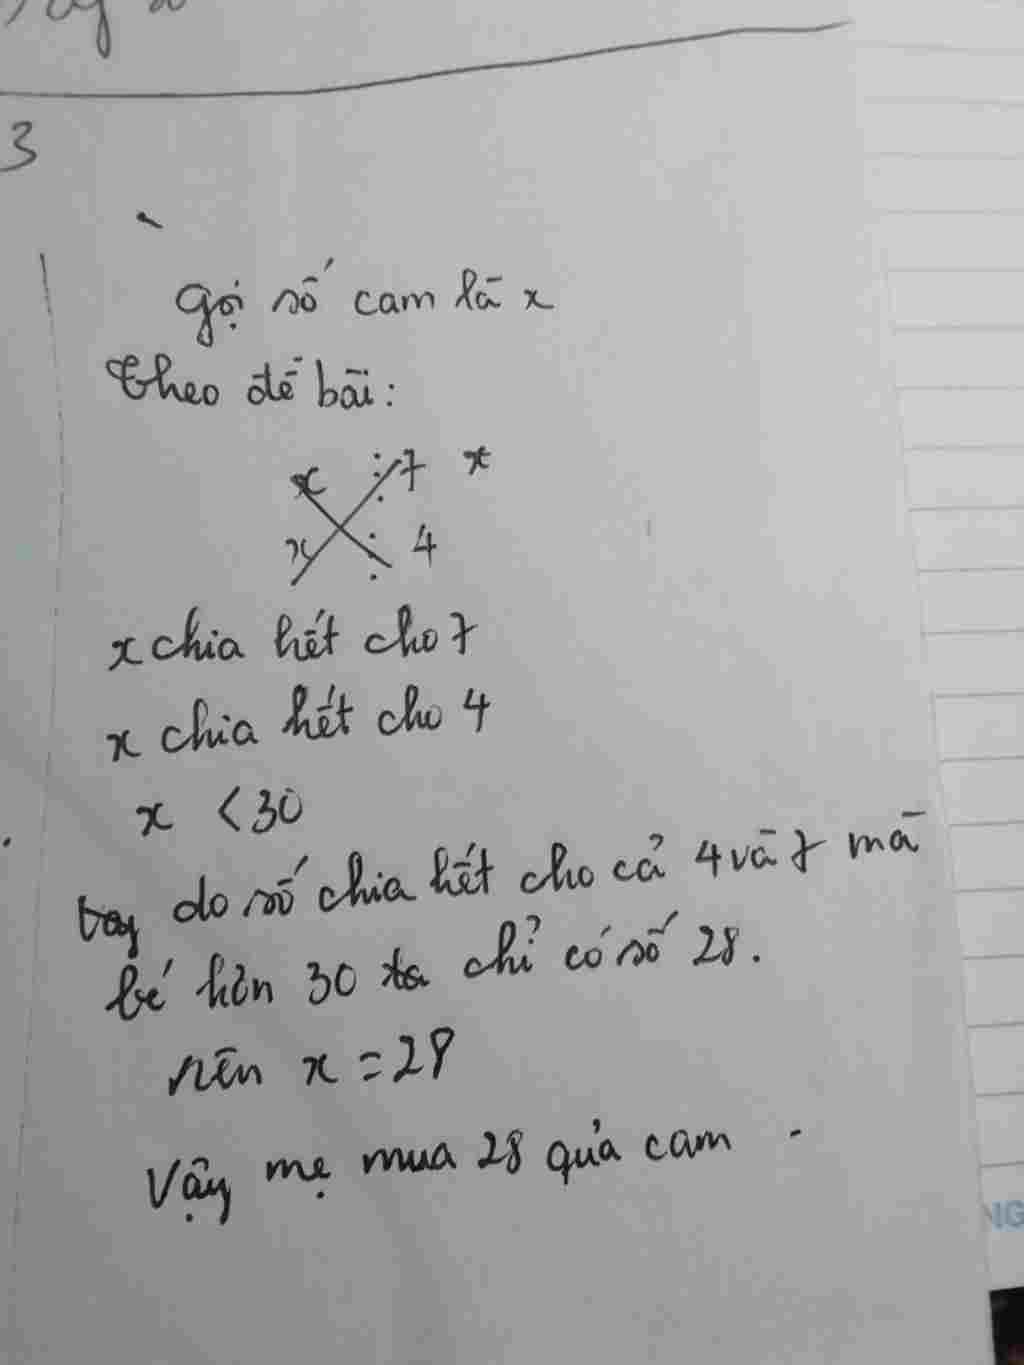 3
Gọi số cam là x
Theo đề bài:
x ⋮ 7 x
x ⋮ 4
x chia hết cho 7
x chia hết cho 4
x < 30
do số chia hết cho cả 4 và 7 mà
bé hơn 30 ta chỉ có số 28.
nên x = 28
Vậy mẹ mua 28 quả cam
NG